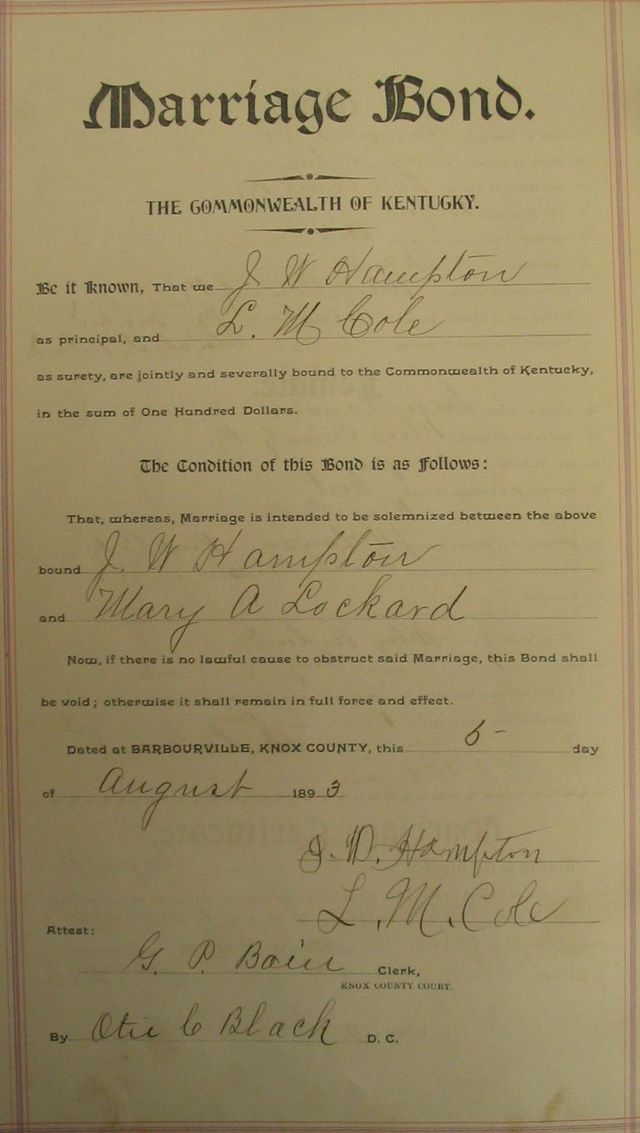 Marriage Bond.
THE COMMONWEALTH OF KENTUCKY.
Be it Known, That we J W Hampton
as principal, and L. M Cole
as surety, are jointly and severally bound to the Commonwealth of Kentucky,
in the sum of One Hundred Dollars.
The Condition of this Bond is as Follows:
That, whereas, Marriage is intended to be solemnized between the above
bound J. W Hampton
and Mary A Lockard
Now, if there is no lawful cause to obstruct said Marriage, this Bond shall
be void; otherwise it shall remain in full force and effect.
Dated at BARBOURVILLE, KNOX COUNTY, this 5- day
of August 1893
J. W. Hampton
L. M. Cole
Attest:
G. P. Bain Clerk,
KNOX COUNTY COURT.
By Otie C Black D. C.